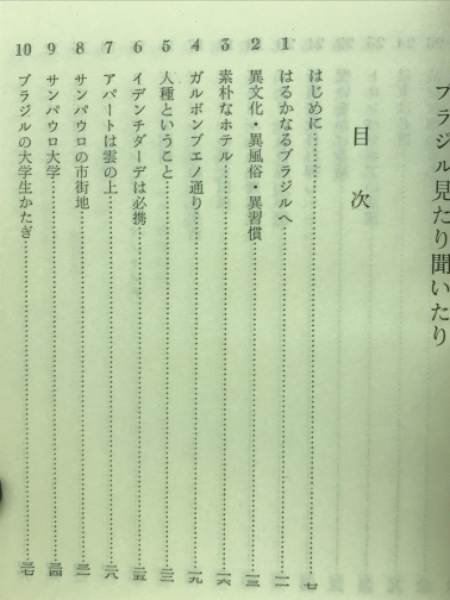 ブラジル見たり聞いたり
目次
はじめに……七
1 はるかなるブラジルへ……一一
2 異文化・異風俗・異習慣……一三
3 素朴なホテル……一六
4 ガルボンブエノ通り……一九
5 人種ということ……二二
6 イデンチダーデは必携……二五
7 アパートは雲の上……二八
8 サンパウロの市街地……三一
9 サンパウロ大学……三四
10 ブラジルの大学生かたぎ……三七